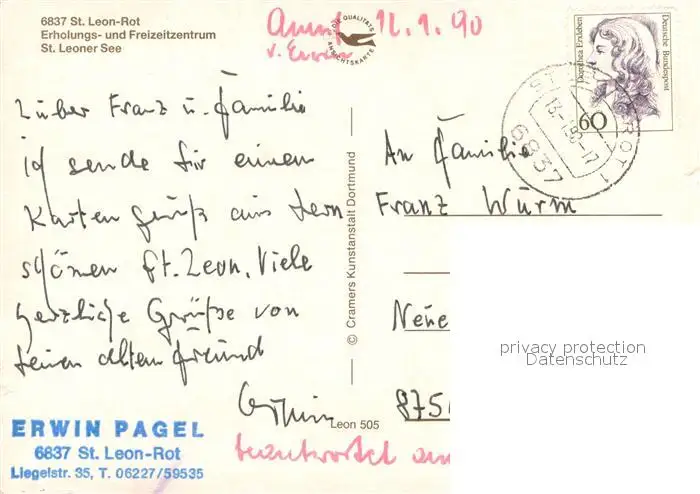 6837 St. Leon-Rot
Erholungs- und Freizeitzentrum
St. Leoner See
12.1.90
v. Erwin
DIE QUALITÄTS
ANSICHTSKARTE
Dorothea Erxleben
Deutsche Bundespost
60
6837
Lieber Franz u. Familie
ich sende Dir einen
Karten gruß aus dem
schönen St. Leon. Viele
herzliche Grüße von
Deinen alten Freund
Erwin
An Familie
Franz Wurm
Neue
875
© Cramers Kunstanstalt Dortmund
Leon 505
privacy protection
Datenschutz
ERWIN PAGEL
6837 St. Leon-Rot
Liegelstr. 35, T. 06227/59535
beantwortet am